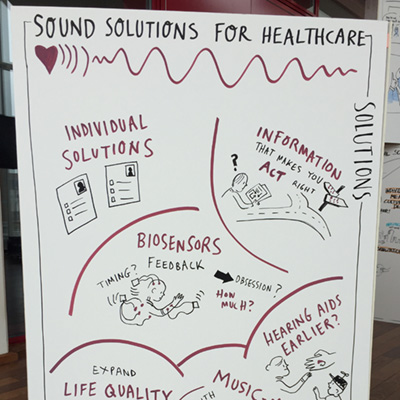 SOUND SOLUTIONS FOR HEALTHCARE
SOLUTIONS
INDIVIDUAL
SOLUTIONS
INFORMATION
THAT MAKES YOU
ACT RIGHT
?
BIOSENSORS
FEEDBACK
TIMING?
OBSESSION?
HOW
MUCH?
HEARING AIDS
EARLIER?
EXPAND
LIFE QUALITY
MUSIC